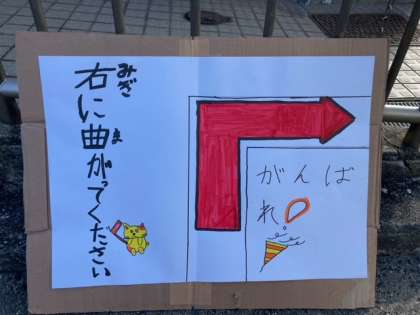 右に曲がってください
みぎ
ま
がんば
れ